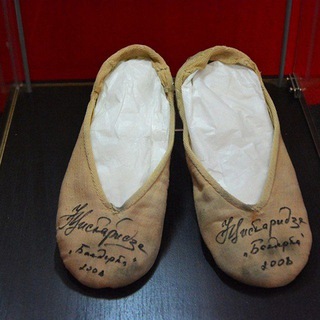 НЦискаридзе
„Баядерка“
2008
НЦискаридзе
„Баядерка“
2008